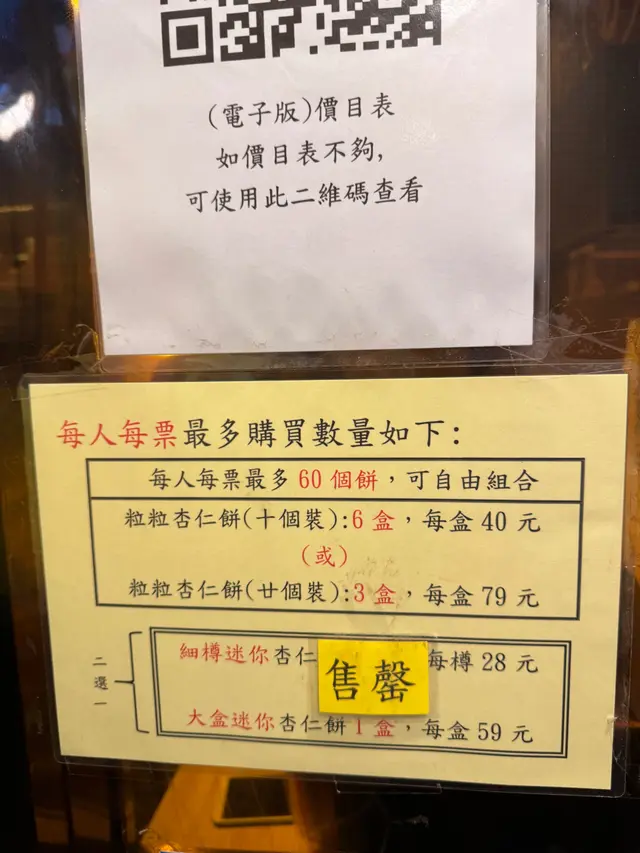 (電子版)價目表
如價目表不夠,
可使用此二維碼查看
每人每票最多購買數量如下:
每人每票最多60個餅,可自由組合
粒粒杏仁餅(十個裝):6盒,每盒40元
(或)
粒粒杏仁餅(廿個裝):3盒,每盒79元
二選一
細樽迷你杏仁
售罄
每樽28元
大盒迷你杏仁餅1盒,每盒59元